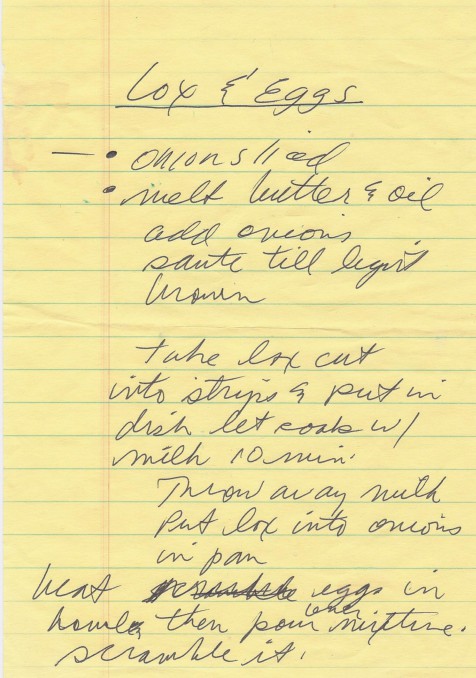 Lox & Eggs
— • onion sliced
• melt butter & oil
add onions
saute till light
brown
Take lox cut
into strips & put in
dish let soak w/
milk 10 min.
Throw away milk
Put lox into onions
in pan
beat eggs in
bowl & then pour over mixture.
scramble it.